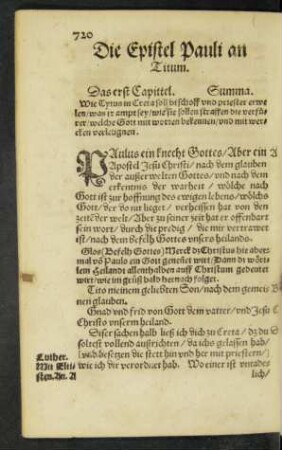 720
Die Epistel Pauli an
Titum.
Das erst Capittel. Summa.
Wie Tytus in Creta soll bischoff vnd priester erwe
len/was jr ampt sey/wie sie sollen straffen die verfü
rer/welche Gott mit worten bekennen/vnd mit wer
cken verleugnen.
PAulus ein knecht Gottes/Aber ein A
Apostel Jesu Christi/nach dem glauben
der außerwelten Gottes/vnd nach dem
erkentnis der warheit/wölche nach
Gott ist zur hoffnung des ewigen lebens/wölchs
Gott/der do nit lieget/verheissen hat von den
zeitē der welt/Aber zu seiner zeit hat er offenbart
sein wort/durch die predig/die mir vertrawet
ist/nach dem Befelh Gottes vnsers heilands.
Glos(Befelh Gottes)Merck dz Christus hie aber
mal võ Paulo ein Gott genẽnet wirt/Dann di wört
lein Heilandt allenthalben auff Christum gedeutet
wirt/wie im grůß halb hernach folget.
Tito meinem geliebten Son/nach dem gemeis B
nen glauben.
Gnad vnd frid von Gott dem vatter/vnd Jesu C
Christo vnserm heiland.
Diser sachen halb ließ ich dich zu Creta/dz du D
soltest vollend außrichten/da ichs gelassen hab/
(vnd besetzen die stett hin vnd her mit priestern/)
wie ich dir verordnet hab. Wo einer ist vntades
lich/
Luther.
Mit Elti
sten. An. A